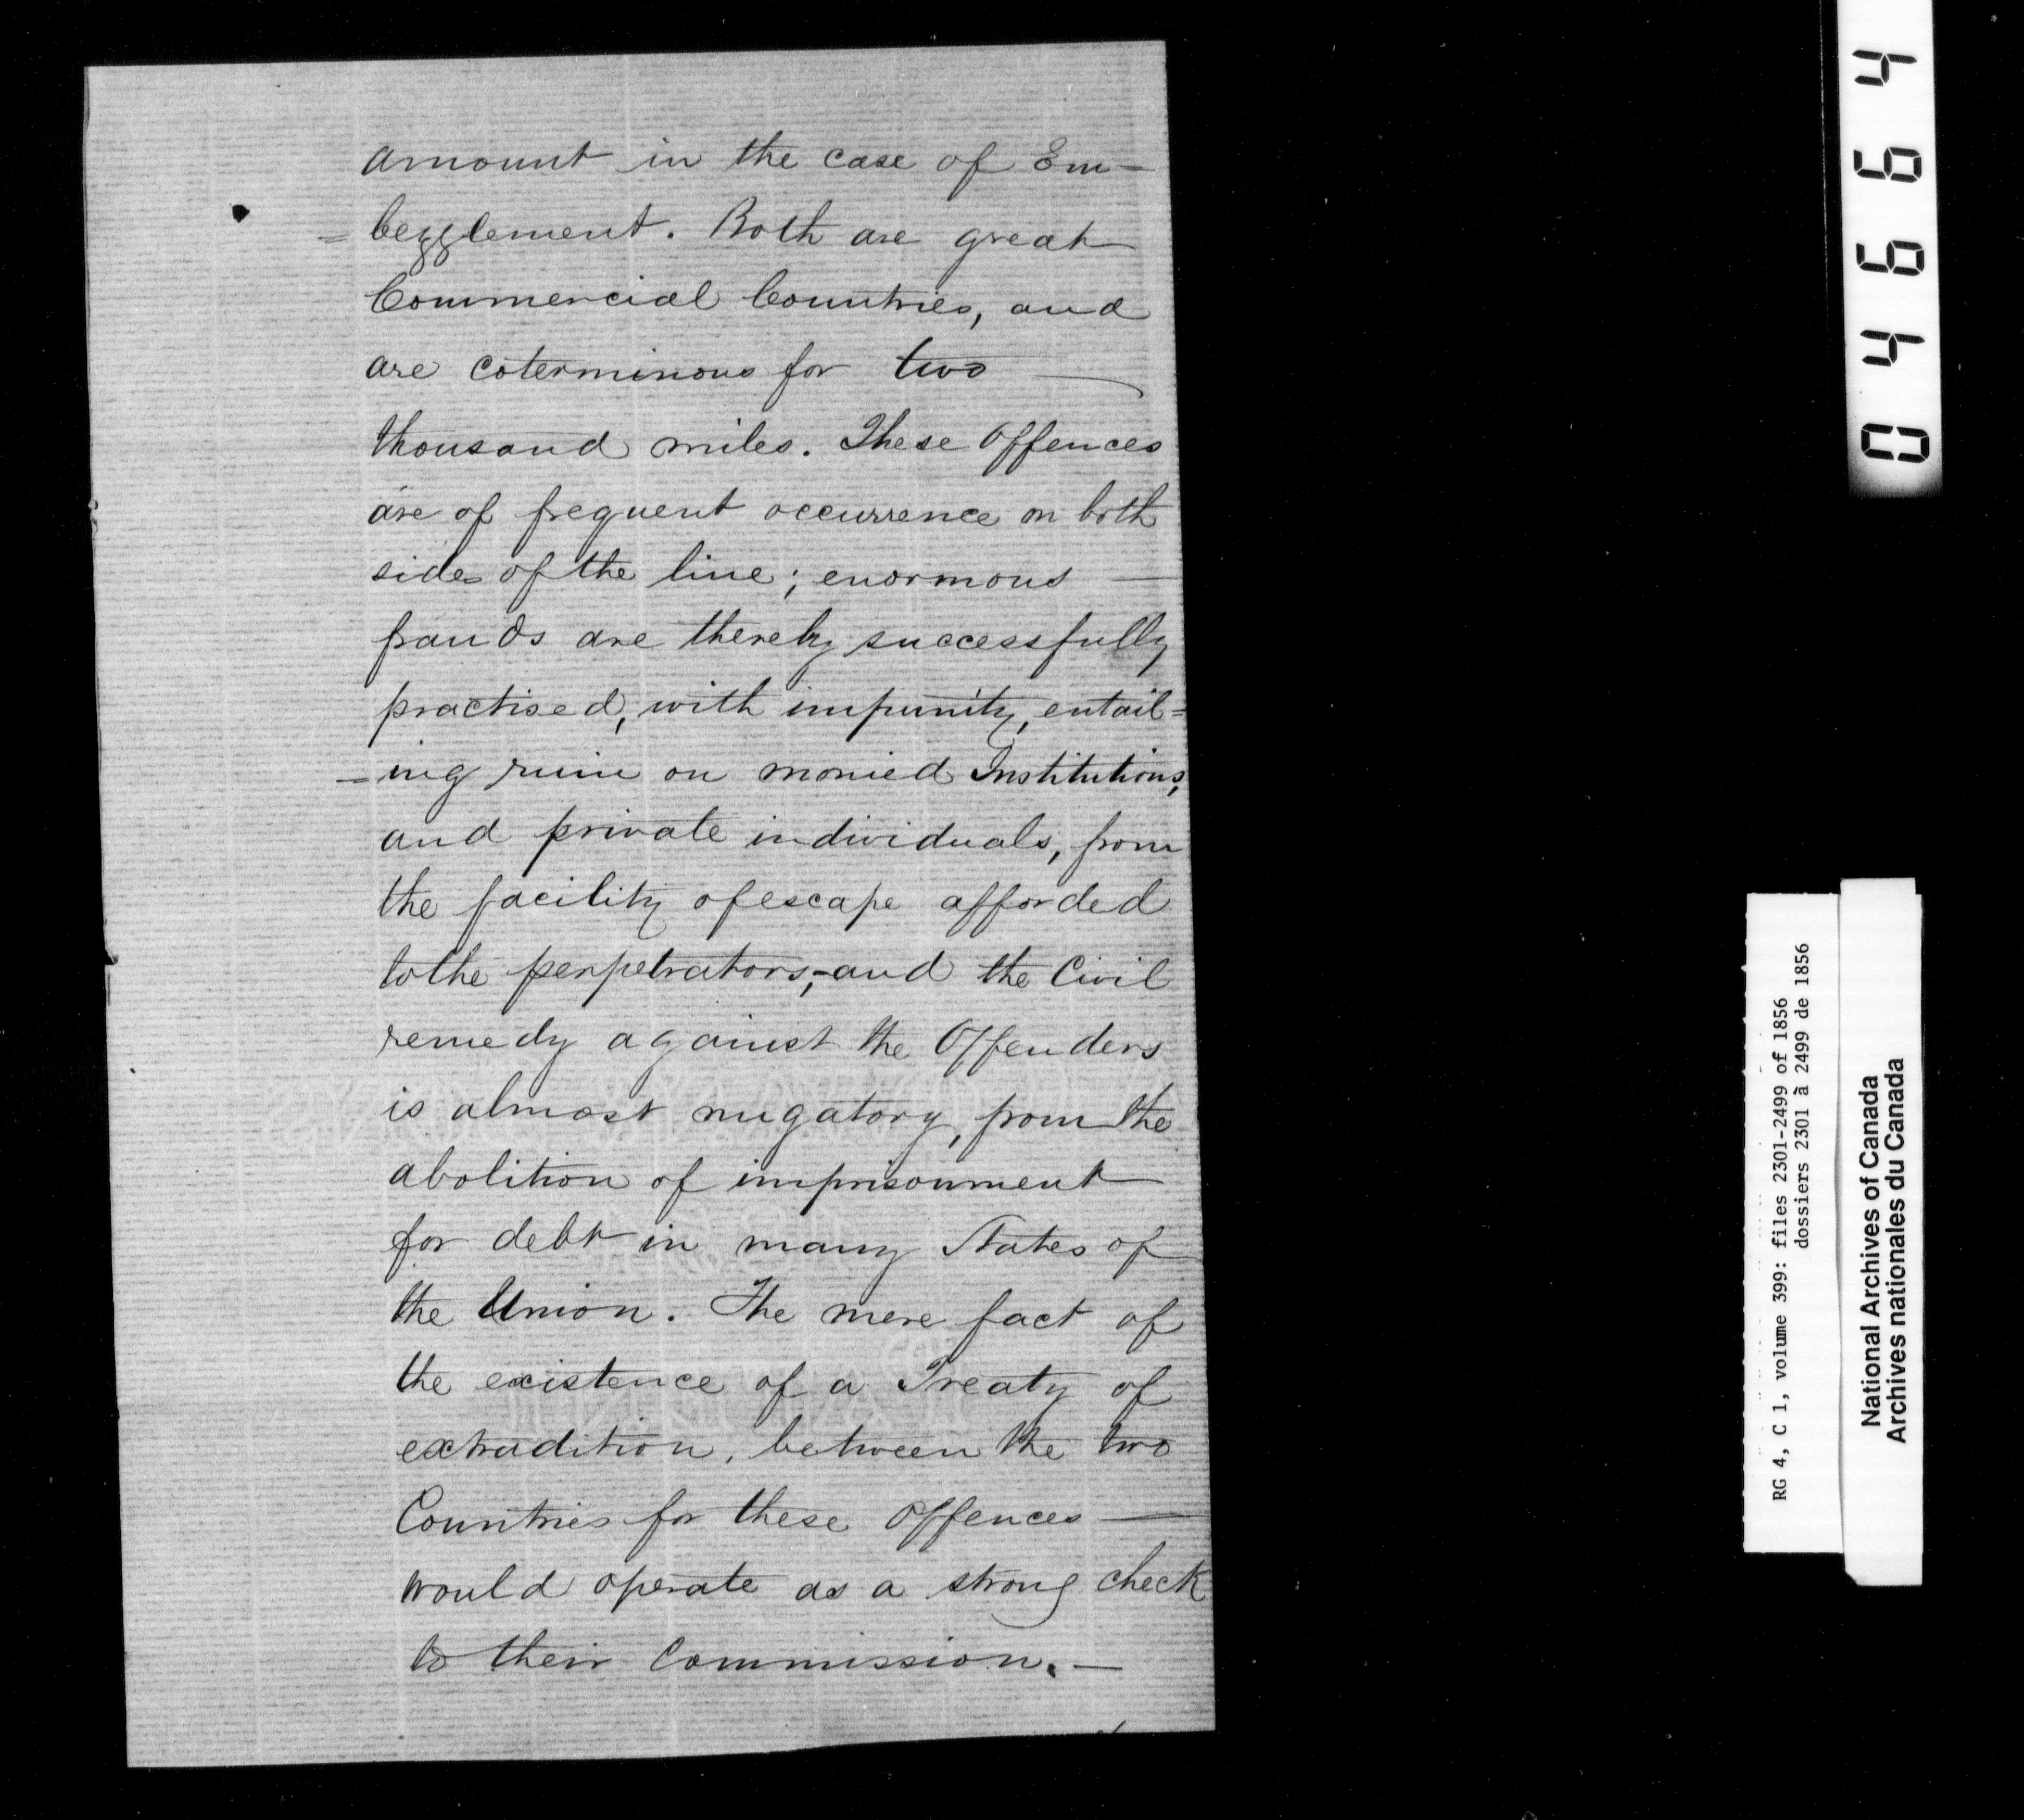 amount in the case of Em-
=bezzlement. Both are great
Commercial Countries, and
are coterminous for two
thousand miles. These Offences
are of frequent occurrence on both
sides of the line; enormous
frauds are thereby successfully
practised, with impunity, entail=
=ing ruin on monied Institutions,
and private individuals, from
the facility of escape afforded
to the perpetrators,-and the Civil
remedy against the Offenders
is almost nugatory, from the
abolition of imprisonment
for debt in many States of
the Union. The mere fact of
the existence of a Treaty of
extradition, between the two
Countries for these Offences
would operate as a strong check
to their Commission.—
04664
RG 4, C 1, volume 399: files 2301-2499 of 1856
dossiers 2301 à 2499 de 1856
National Archives of Canada
Archives nationales du Canada